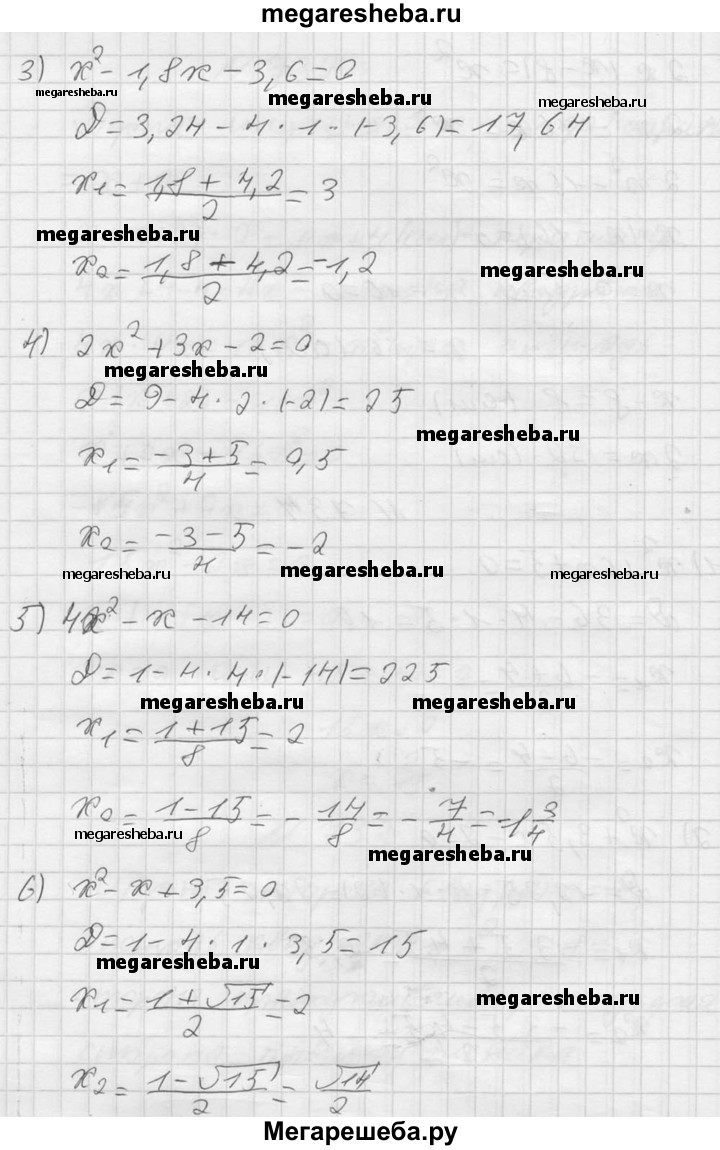 megaresheba.ru
3) x² - 1,8x - 3,6 = 0
megaresheba.ru megaresheba.ru megaresheba.ru
D = 3,24 - 4 · 1 · (-3,6) = 17,64
x₁ = (1,8 + 4,2)/2 = 3
megaresheba.ru
x₂ = (1,8 - 4,2)/2 = -1,2
megaresheba.ru
4) 2x² + 3x - 2 = 0
megaresheba.ru
D = 9 - 4 · 2 · (-2) = 25
megaresheba.ru
x₁ = (-3 + 5)/4 = 0,5
x₂ = (-3 - 5)/4 = -2
megaresheba.ru megaresheba.ru megaresheba.ru
5) 4x² - x - 14 = 0
D = 1 - 4 · 4 · (-14) = 225
megaresheba.ru megaresheba.ru
x₁ = (1 + 15)/8 = 2
x₂ = (1 - 15)/8 = - 14/8 = - 7/4 = -1 3/4
megaresheba.ru
megaresheba.ru
6) x² - x + 3,5 = 0
D = 1 - 4 · 1 · 3,5 = 15
megaresheba.ru
x₁ = (1 + √15)/2 = 2
megaresheba.ru
x₂ = (1 - √15)/2 = √14/2
Мегарешеба.ру